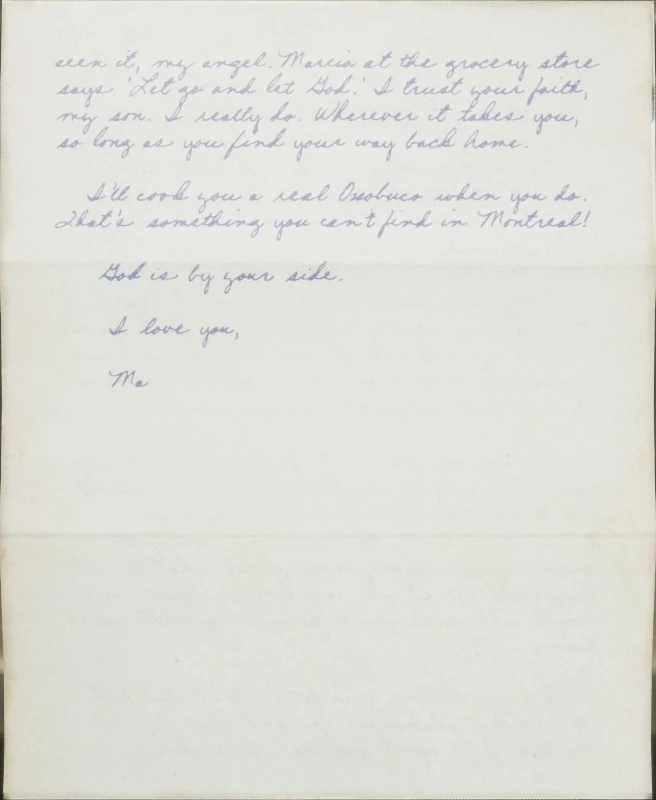 seen it, my angel. Marcia at the grocery store
says 'Let go and let God.' I trust your faith,
my son. I really do. Wherever it takes you,
so long as you find your way back home.
I'll cook you a real Ossobuco when you do.
That's something you can't find in Montreal!
God is by your side.
I love you,
Ma